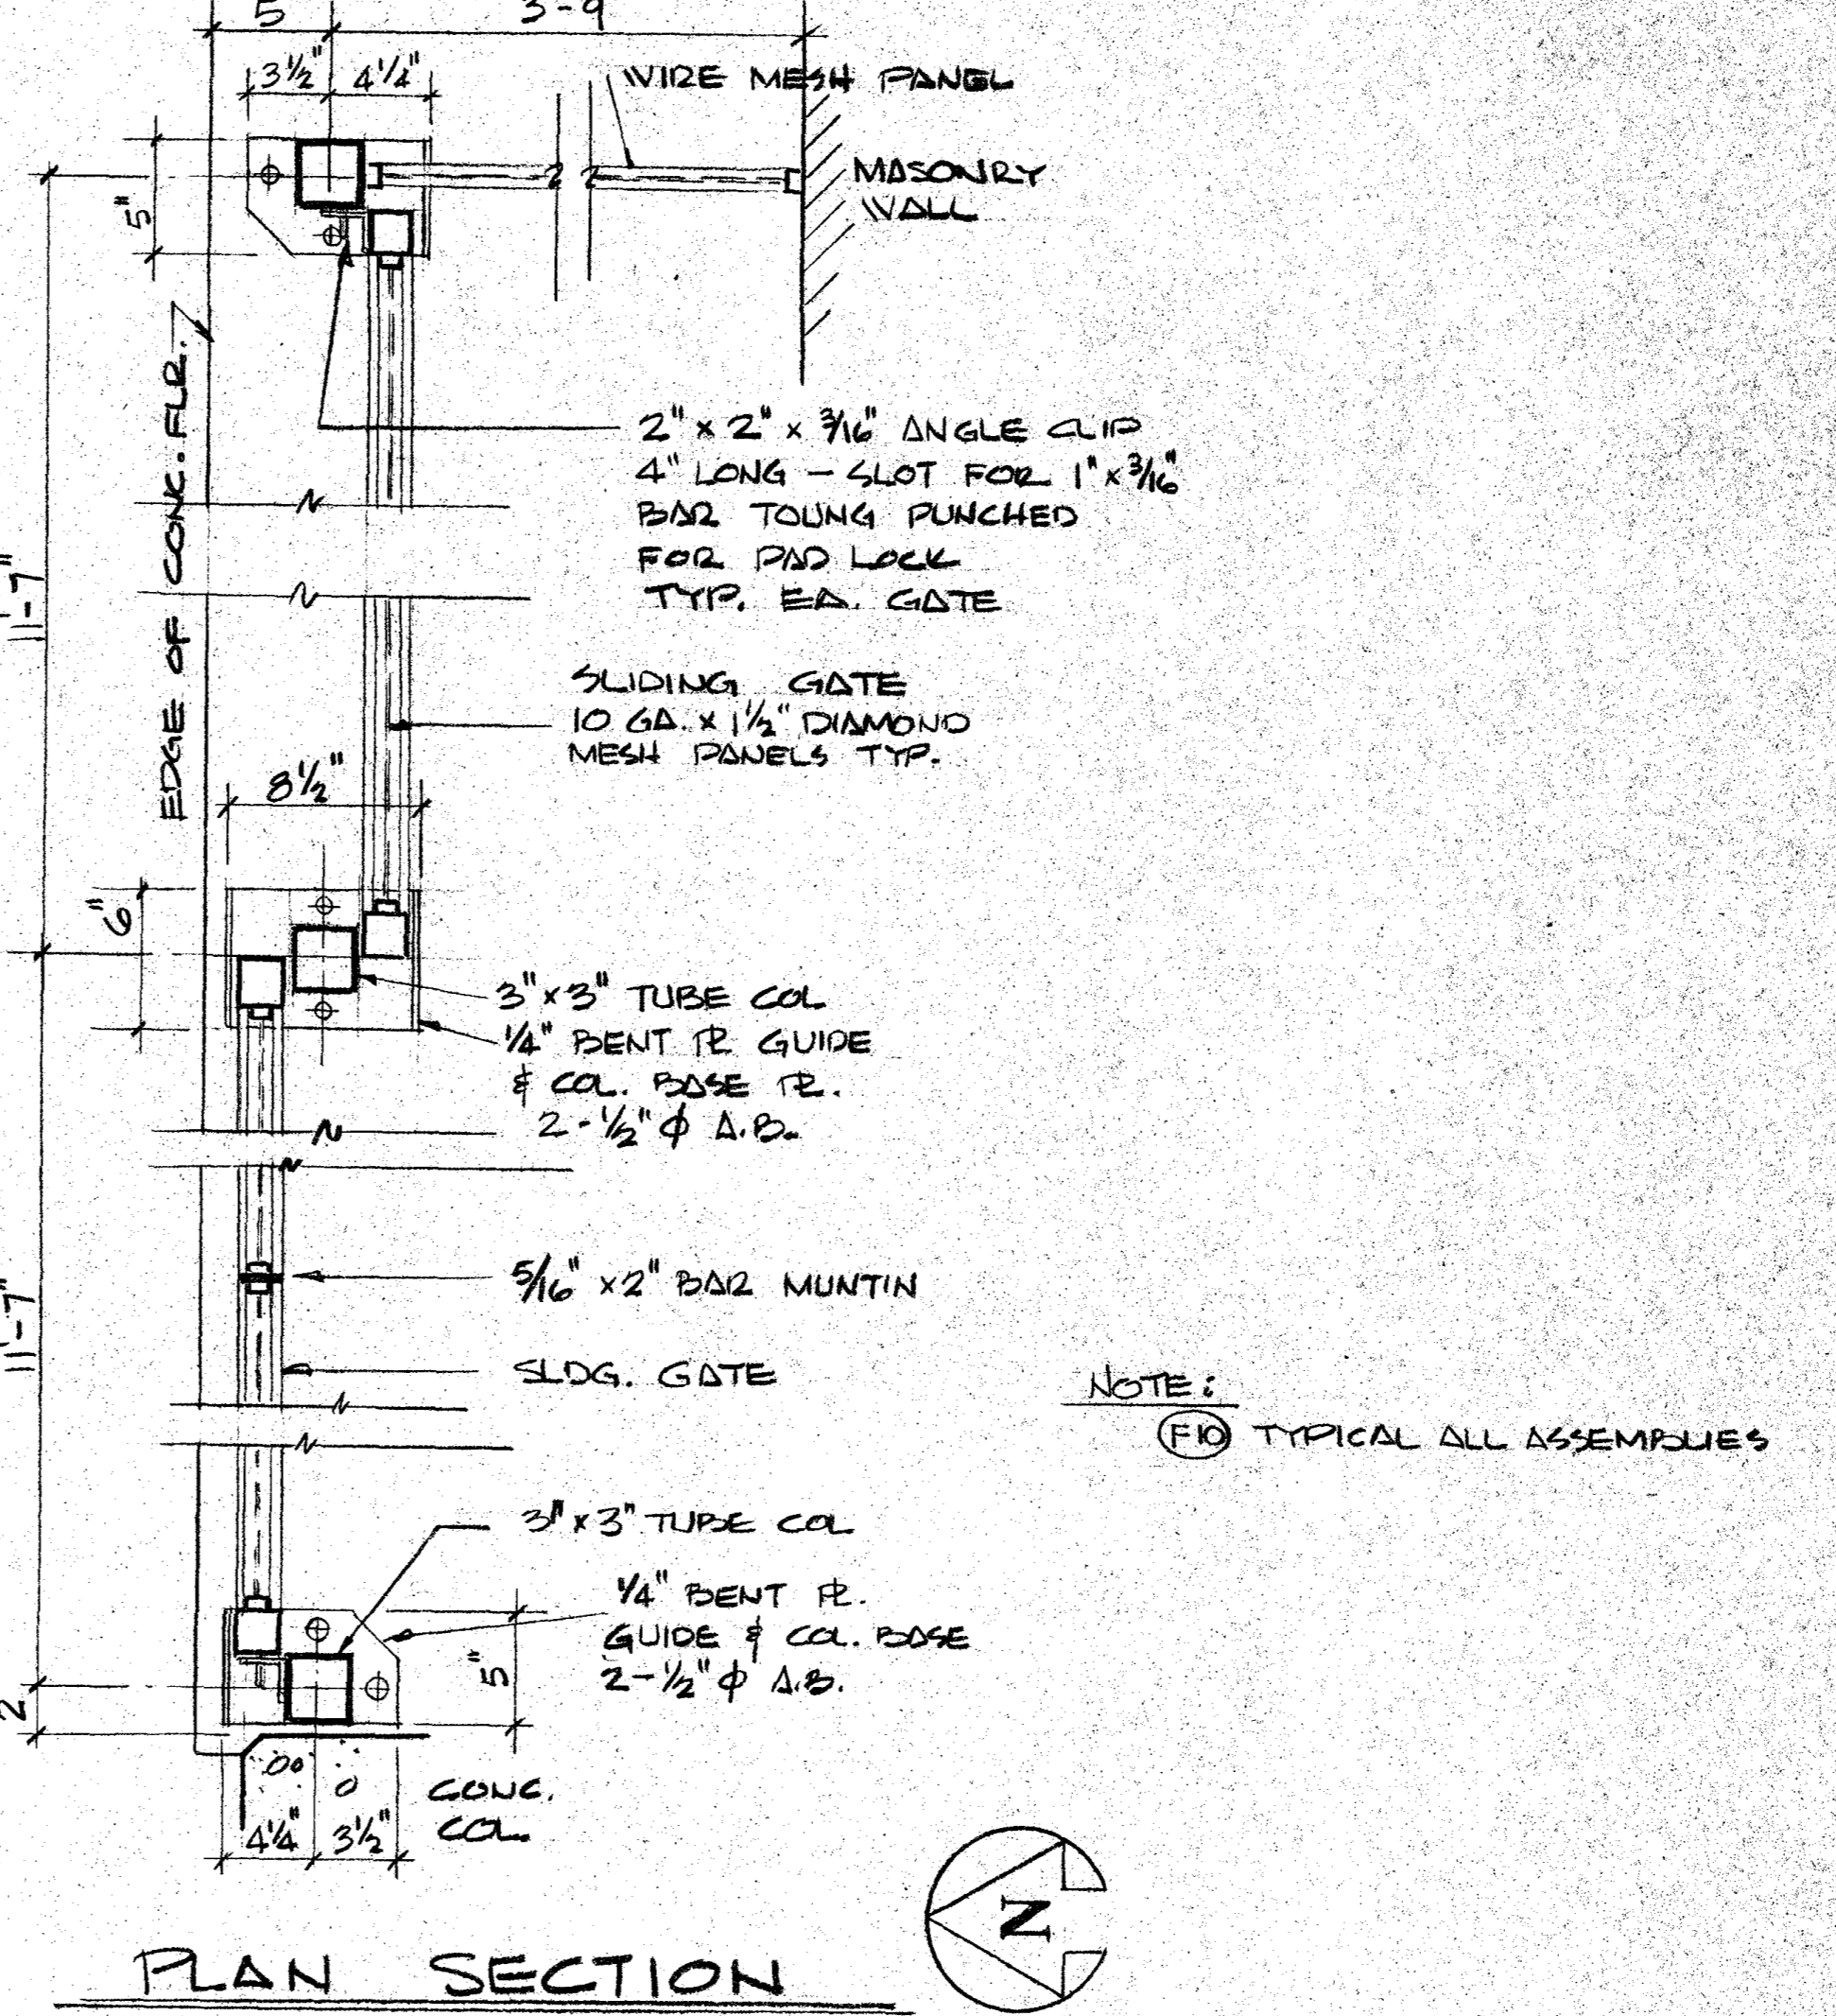 5 3-9
3½" 4¼"
WIRE MESH PANEL
MASONRY
WALL
5"
EDGE OF CONC. FLR.
2" x 2" x 3/16" ANGLE CLIP
4" LONG - SLOT FOR 1" x 3/16"
BAR TOUNG PUNCHED
FOR PAD LOCK
TYP. EA. GATE
11'-7"
SLIDING GATE
10 GA. x 1½" DIAMOND
MESH PANELS TYP.
8½"
6"
3" x 3" TUBE COL
¼" BENT PL GUIDE
& COL. BASE PL.
2-½" ϕ A.B.
5/16" x 2" BAR MUNTIN
11'-7"
SLDG. GATE
NOTE:
F10 TYPICAL ALL ASSEMBLIES
3" x 3" TUBE COL
¼" BENT PL.
GUIDE & COL. BASE
2-½" ϕ A.B.
5"
2
CONC.
COL.
4¼" 3½"
N
PLAN SECTION